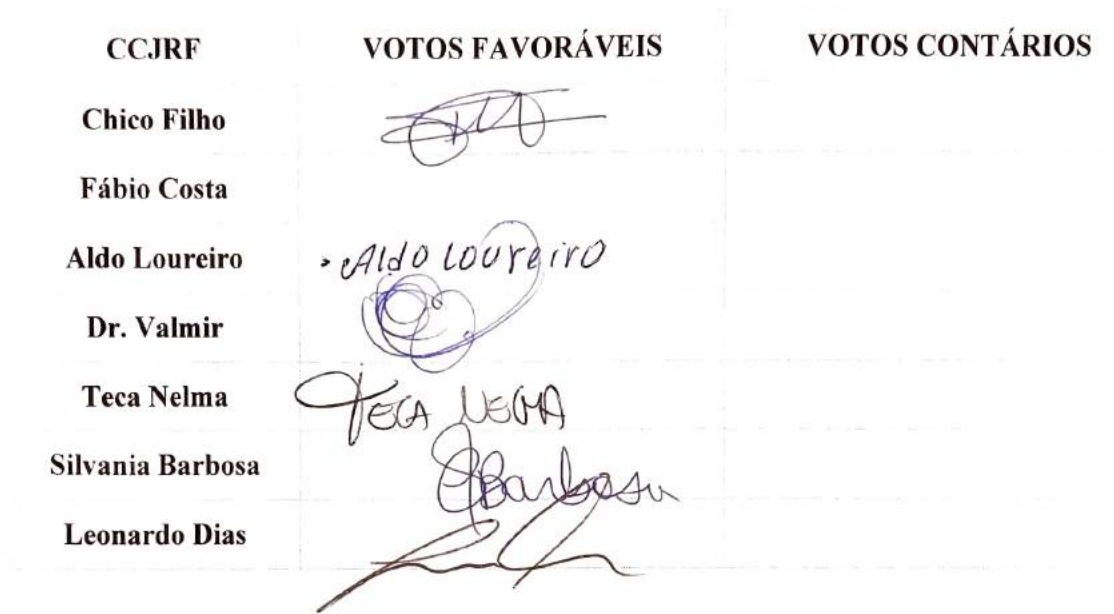 CCJRF VOTOS FAVORÁVEIS VOTOS CONTÁRIOS
Chico Filho
Fábio Costa
Aldo Loureiro Aldo Loureiro
Dr. Valmir
Teca Nelma TECA NELMA
Silvania Barbosa Barbosa
Leonardo Dias